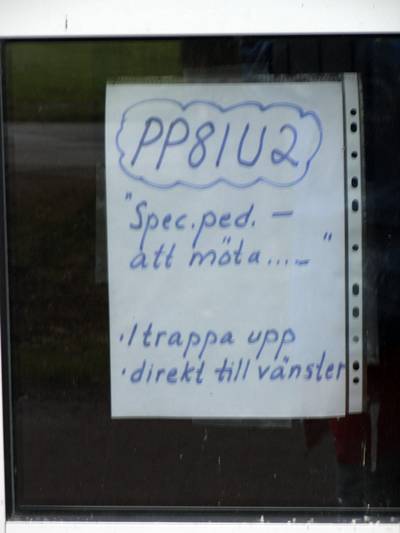 PP81U2
"Spec.ped. –
att möta....– "
• 1 trappa upp
• direkt till vänster